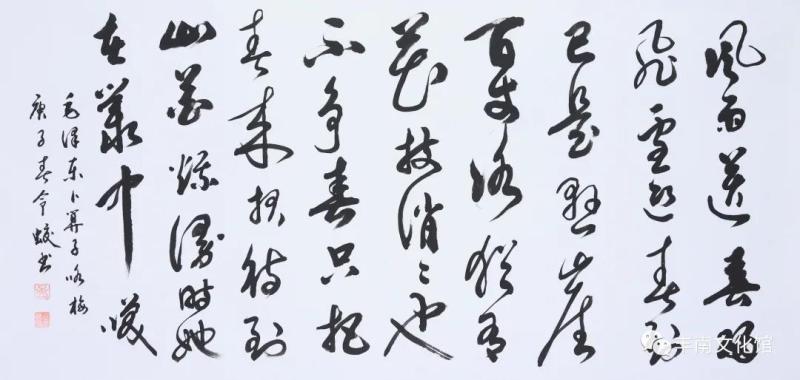 风雨送春归
飞雪迎春到
已是悬崖
百丈冰犹有
花枝俏〻也
不争春只把
春来报待到
山花烂漫时她
在丛中咲
毛泽东卜算子咏梅
庚子春令蛟书
丰南文化馆